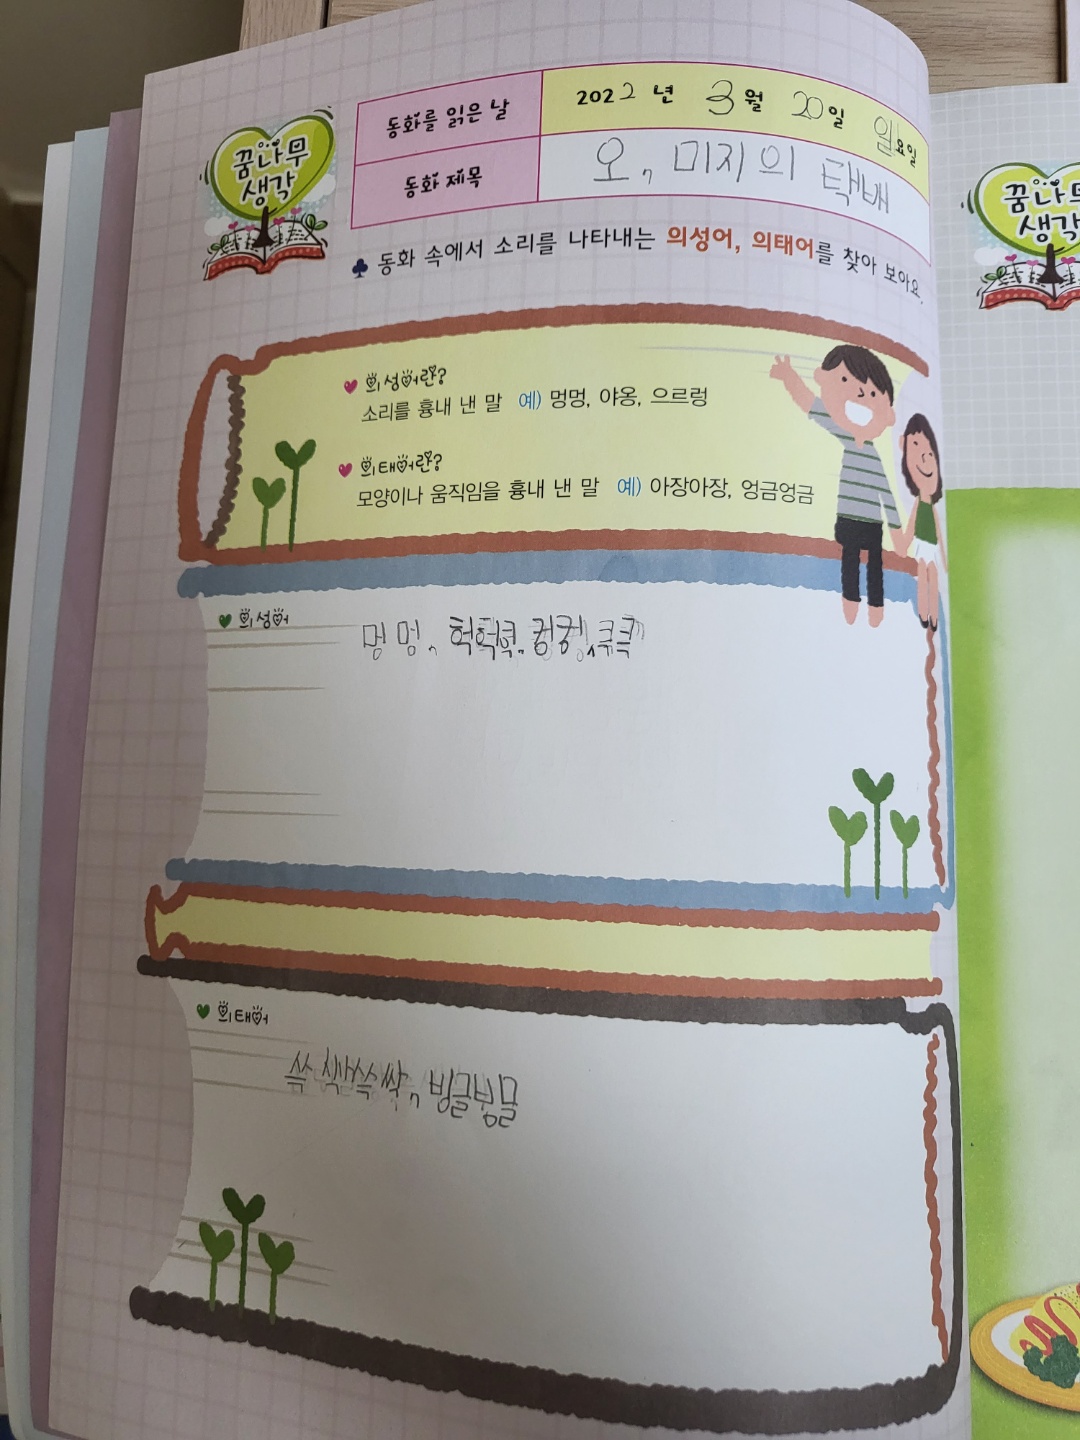 꿈나무
생각
동화를 읽은 날
2022 년 3월 20일 일요일
동화 제목
오, 미지의 택배
꿈나무
생각
♣ 동화 속에서 소리를 나타내는 의성어, 의태어를 찾아 보아요.
의성어란?
소리를 흉내 낸 말 예) 멍멍, 야옹, 으르렁
의태어란?
모양이나 움직임을 흉내 낸 말 예) 아장아장, 엉금엉금
의성어
멍멍,
의태어
빙글빙글